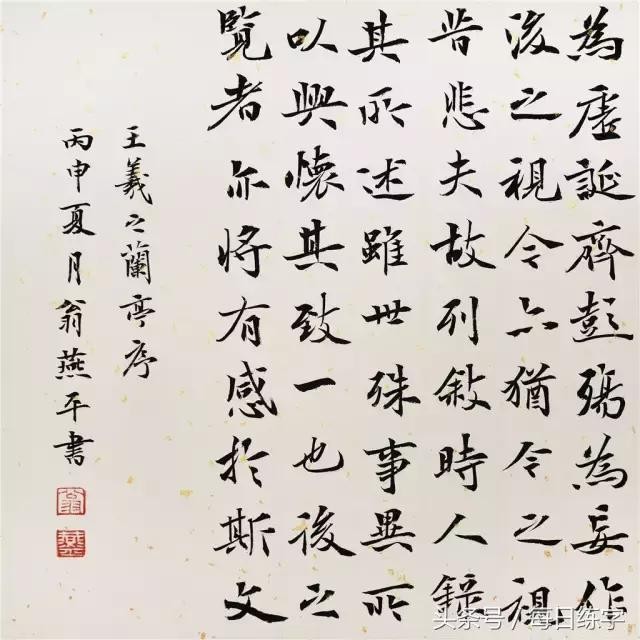 為虛誕齊彭殤為妄作
後之視今亦猶今之視
昔悲夫故列敘時人錄
其所述雖世殊事異所
以興懷其致一也後之
覽者亦將有感於斯文
王羲之蘭亭序
丙申夏月翁燕平書
头条号 / 每日练字